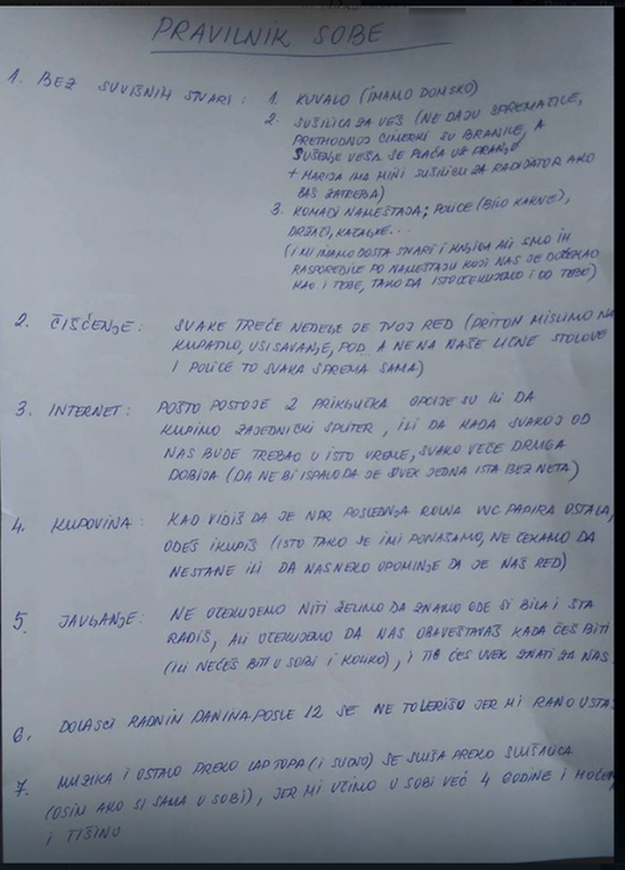 PRAVILNIK SOBE
1. BEZ SUVIŠNIH STVARI: 1. KUVALO (IMAMO DOMSKO)
2. SUŠILICA ZA VEŠ (NE DAJU SPREMAČICE,
PRETHODNOJ CIMERKI SU BRANILE, A
SUŠENJE VEŠA SE PLAĆA UZ PRANJE
+ MARIJA IMA MINI SUŠILICU ZA RADIJATOR AKO
BAŠ ZATREBA)
3. KOMADI NAMEŠTAJA; POLICE (BILO KAKVE),
DRŽAČI, KAZALJKE...
(I MI IMAMO DOSTA STVARI I KNJIGA ALI SMO IH
RASPOREDILE PO NAMEŠTAJU KOJI NAS JE DOČEKAO
KAO I TEBE, TAKO DA ISTO OČEKUJEMO I OD TEBE)
2. ČIŠĆENJE: SVAKE TREĆE NEDELJE JE TVOJ RED (PRITOM MISLIMO NA
KUPATILO, USISAVANJE, POD A NE NA NAŠE LIČNE STOLOVE
I POLICE TO SVAKA SPREMA SAMA)
3. INTERNET: POŠTO POSTOJE 2 PRIKLJUČKA OPCIJE SU ILI DA
KUPIMO ZAJEDNIČKI SPLITER, ILI DA KADA SVAKOJ OD
NAS BUDE TREBAO U ISTO VREME, SVAKO VEČE DRUGA
DOBIJA (DA NE BI ISPALO DA JE UVEK JEDNA ISTA BEZ NETA)
4. KUPOVINA: KAD VIDIŠ DA JE NPR POSLEDNJA ROLNA WC PAPIRA OSTALA,
ODEŠ I KUPIŠ (ISTO TAKO SE I MI PONAŠAMO, NE ČEKAMO DA
NESTANE ILI DA NAS NEKO OPOMINJE DA JE NAŠ RED)
5. JAVLJANJE: NE OČEKUJEMO NITI ŽELIMO DA ZNAMO GDE SI BILA I ŠTA
RADIŠ, ALI OČEKUJEMO DA NAS OBAVEŠTAVAŠ KADA ĆEŠ BITI
(ILI NEĆEŠ BITI U SOBI I KOLIKO), I TI ĆEŠ UVEK ZNATI ZA NAS
6. DOLASCI RADNIM DANIMA POSLE 12 SE NE TOLERIŠU JER MI RANO USTA
7. MUZIKA I OSTALO PREKO LAPTOPA (I SLIČNO) SE SLUŠA PREKO SLUŠALICA
(OSIM AKO SI SAMA U SOBI), JER MI UČIMO U SOBI VEĆ 4 GODINE I HOĆEM
I TIŠINU